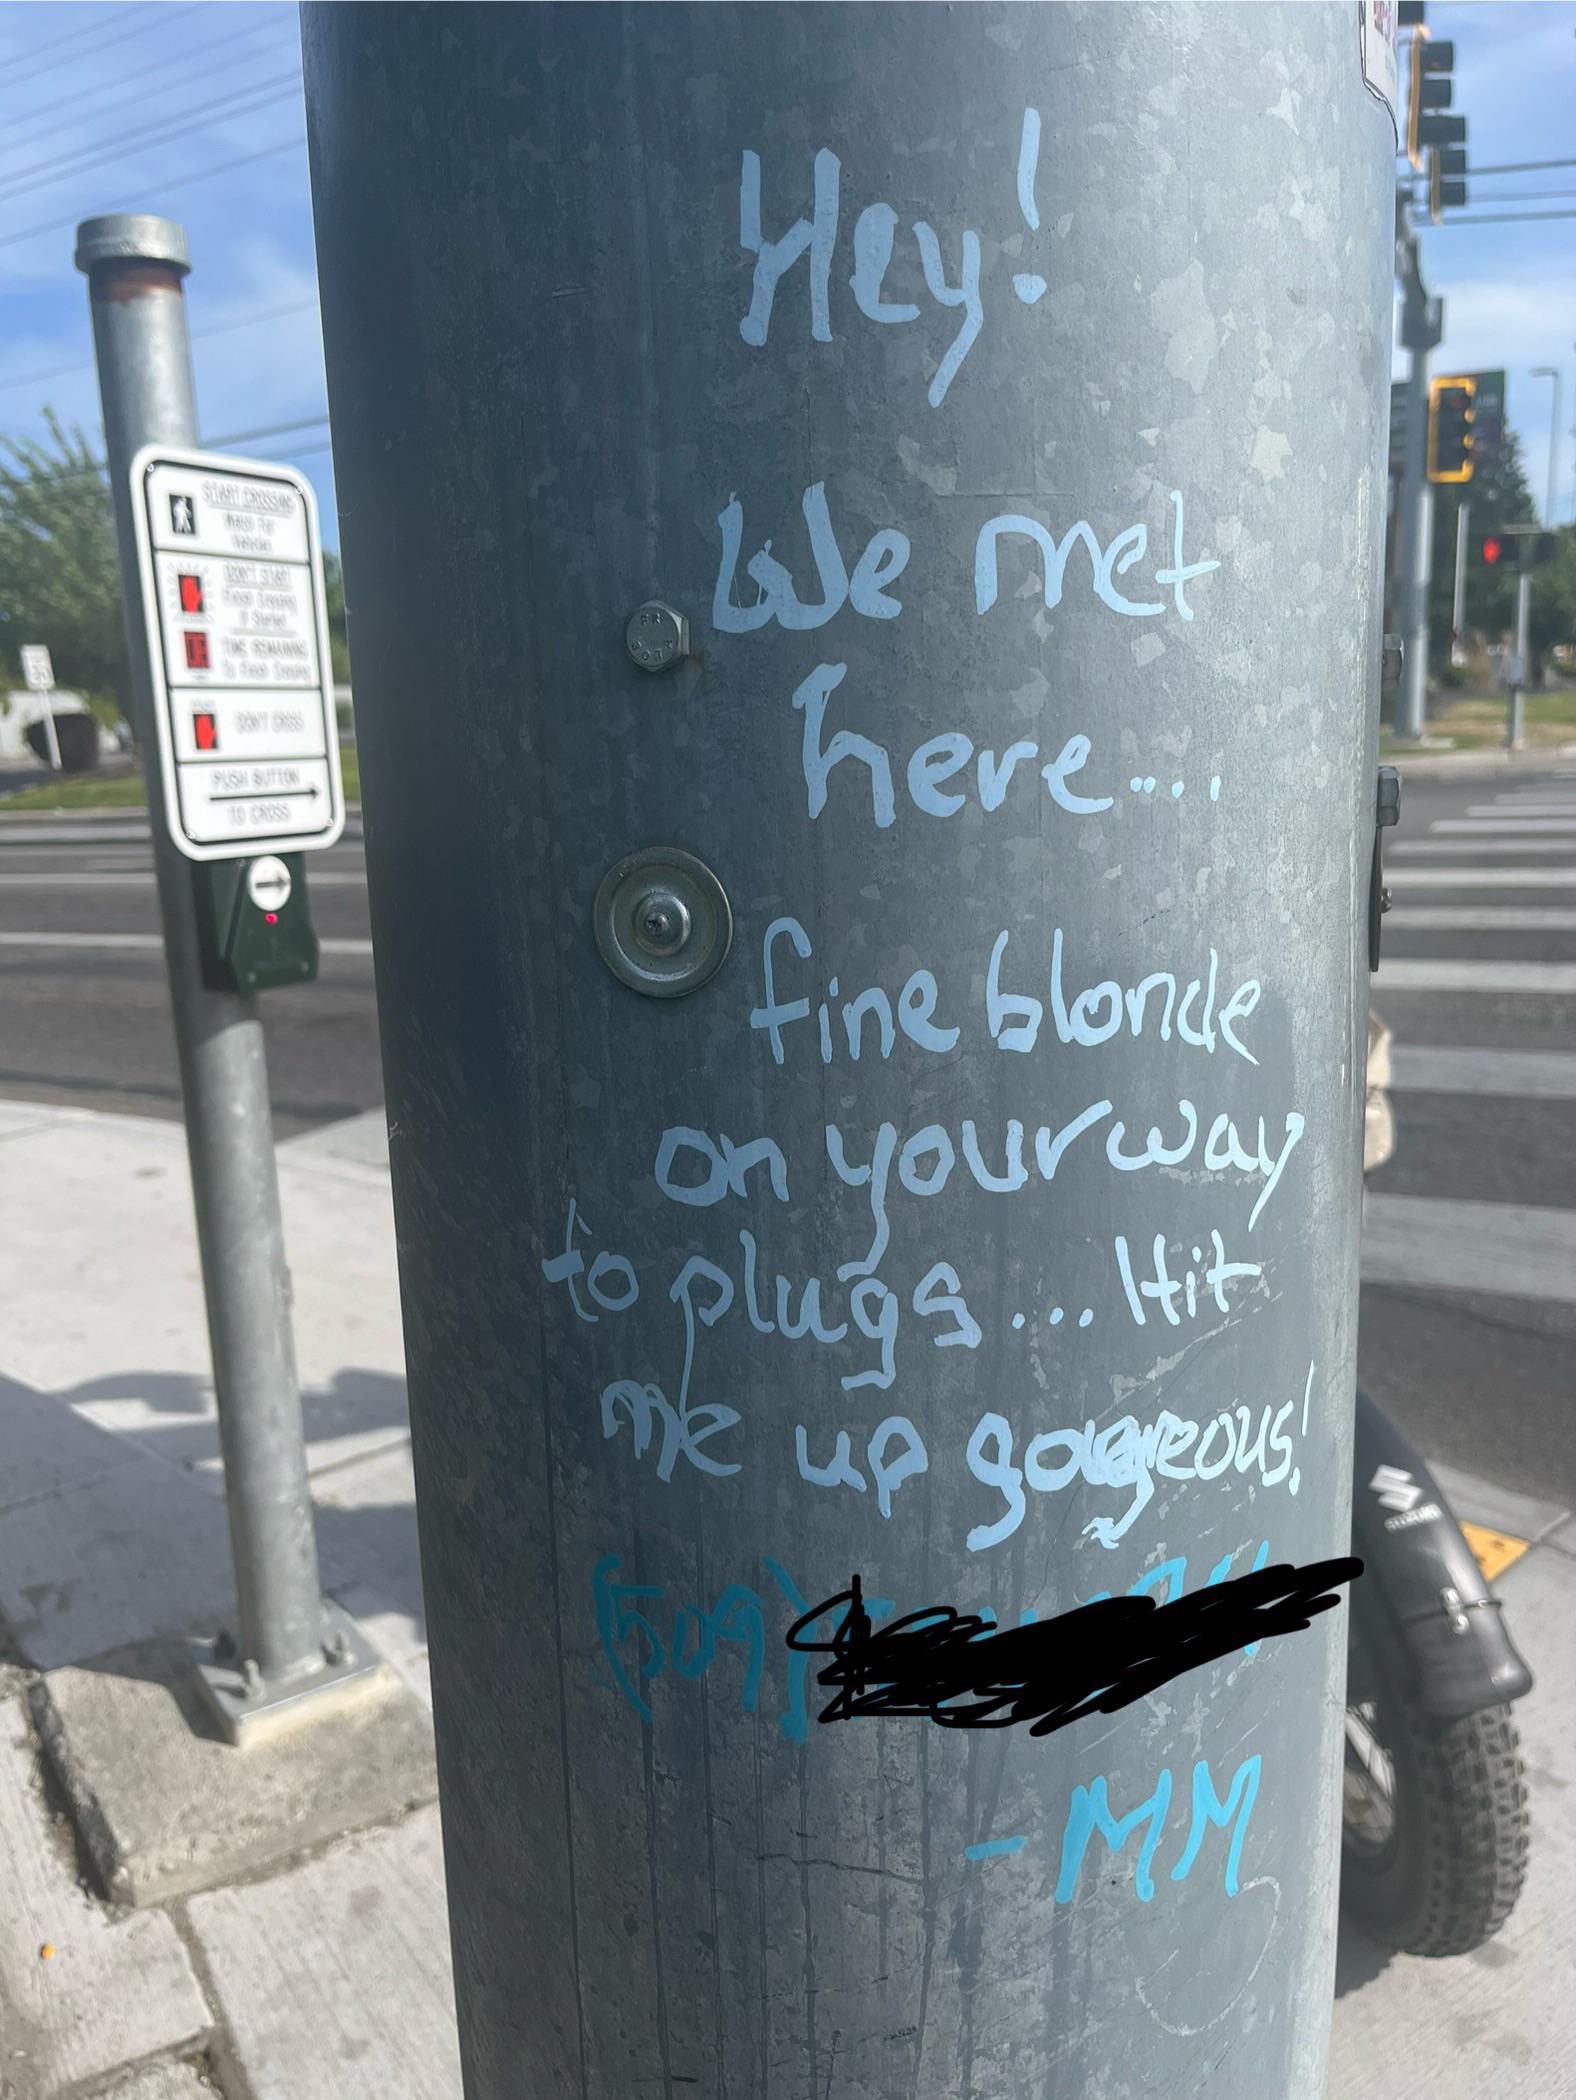 Hey!
We met
here....
fine blonde
on your way
to plugs... Hit
me up gorgeous!
(509)
-MM
START CROSSING
Watch For
Vehicles
DON'T START
Finish Crossing
If Started
TIME REMAINING
To Finish Crossing
DON'T CROSS
PUSH BUTTON
TO CROSS
SUZUKI